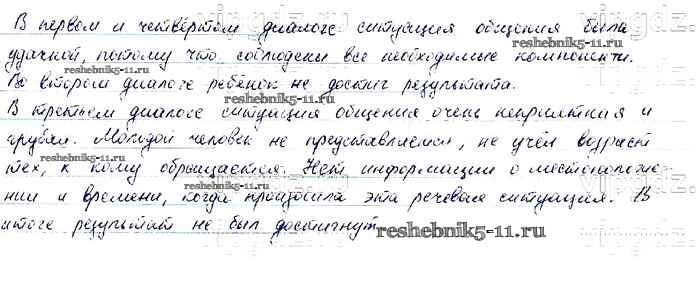 В первом и четвёртом диалоге ситуация общения была
удачной, потому что соблюдены все необходимые компоненты.
Во втором диалоге ребёнок не достиг результата.
В третьем диалоге ситуация общения очень неприятная и
грубая. Молодой человек не представляется, не учёл возраст
тех, к кому обращается. Нет информации о местоположе-
нии и времени, когда произошла эта речевая ситуация. В
итоге результат не был достигнут.
reshebnik5-11.ru
reshebnik5-11.ru
reshebnik5-11.ru
reshebnik5-11.ru